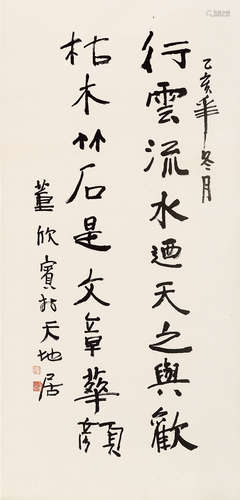 乙亥年冬月
行雲流水迺天之與歡
枯木竹石是文章華顏
董欣賓於天地居